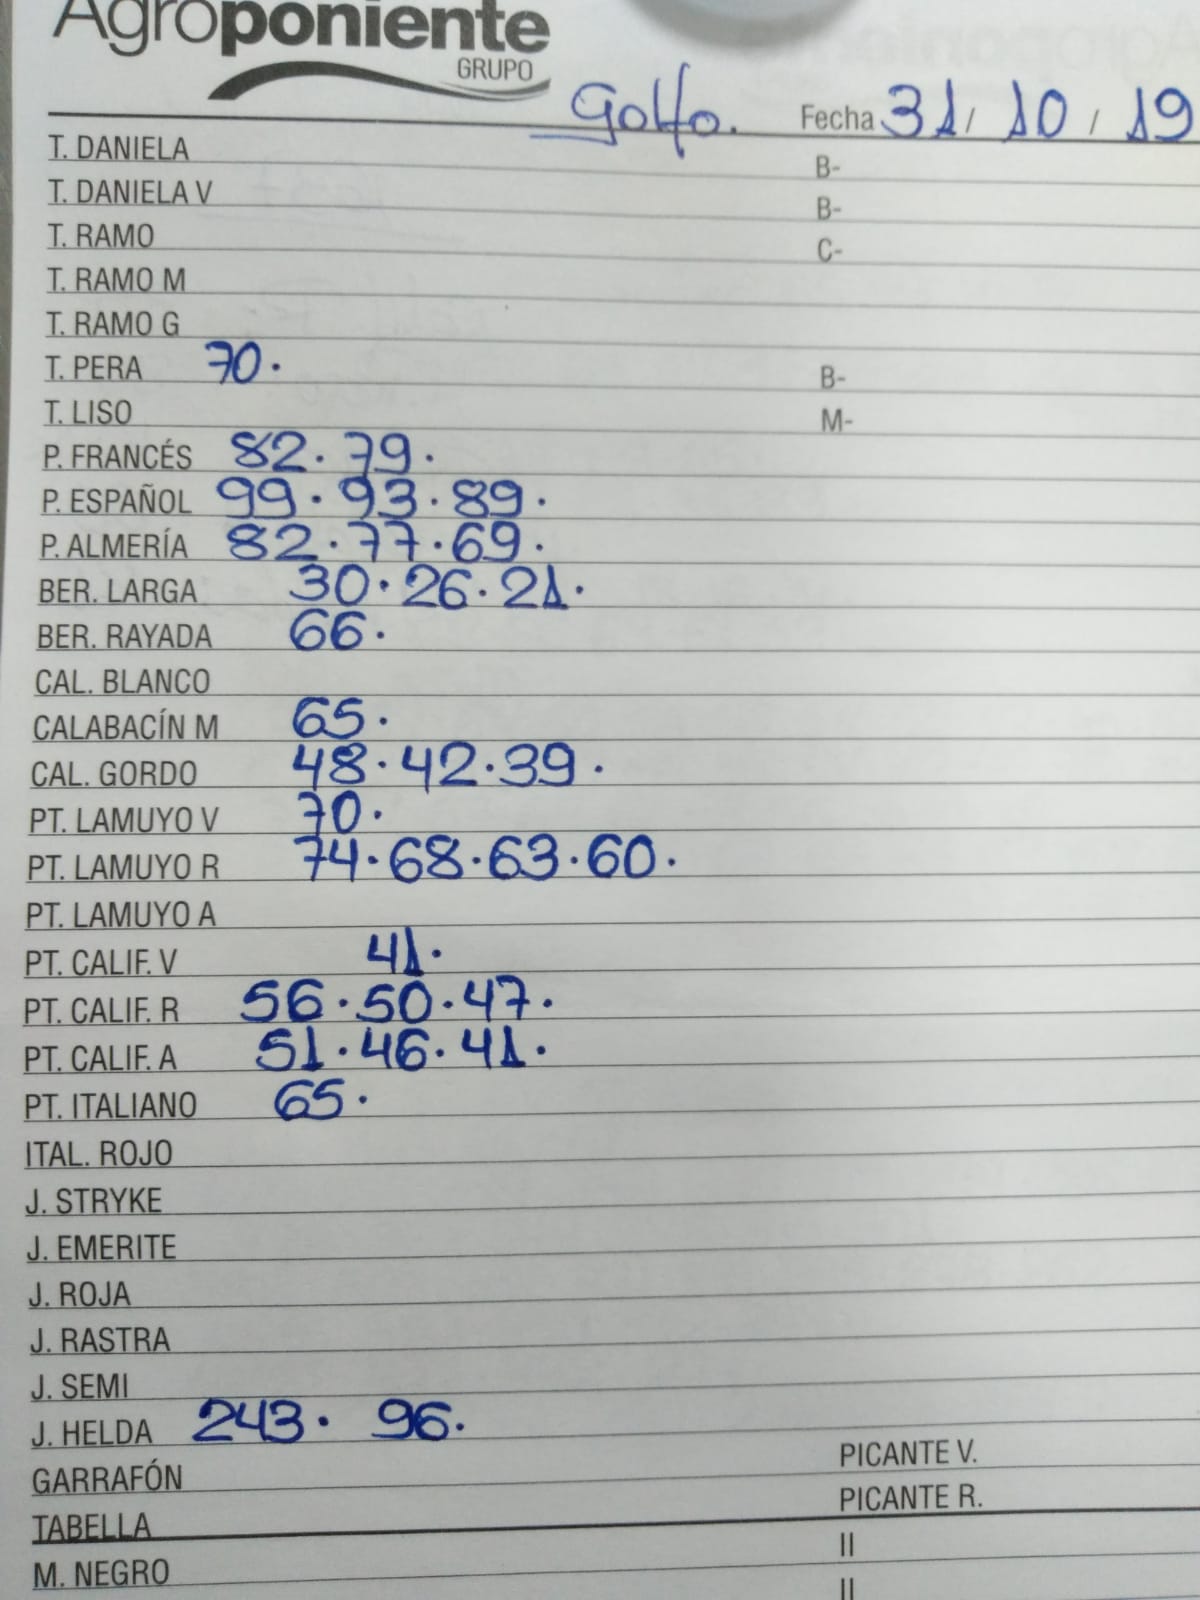 Agroponiente
GRUPO
Golfo. Fecha 31/ 10/ 19
T. DANIELA B-
T. DANIELA V B-
T. RAMO C-
T. RAMO M
T. RAMO G
T. PERA 70. B-
T. LISO M-
P. FRANCÉS 82. 79.
P. ESPAÑOL 99. 93. 89.
P. ALMERÍA 82. 77. 69.
BER. LARGA 30. 26. 21.
BER. RAYADA 66.
CAL. BLANCO
CALABACÍN M 65.
CAL. GORDO 48. 42. 39.
PT. LAMUYO V 70.
PT. LAMUYO R 74. 68. 63. 60.
PT. LAMUYO A
PT. CALIF. V 41.
PT. CALIF. R 56. 50. 47.
PT. CALIF. A 51. 46. 41.
PT. ITALIANO 65.
ITAL. ROJO
J. STRYKE
J. EMERITE
J. ROJA
J. RASTRA
J. SEMI
J. HELDA 243. 96.
GARRAFÓN PICANTE V.
TABELLA PICANTE R.
M. NEGRO II
II